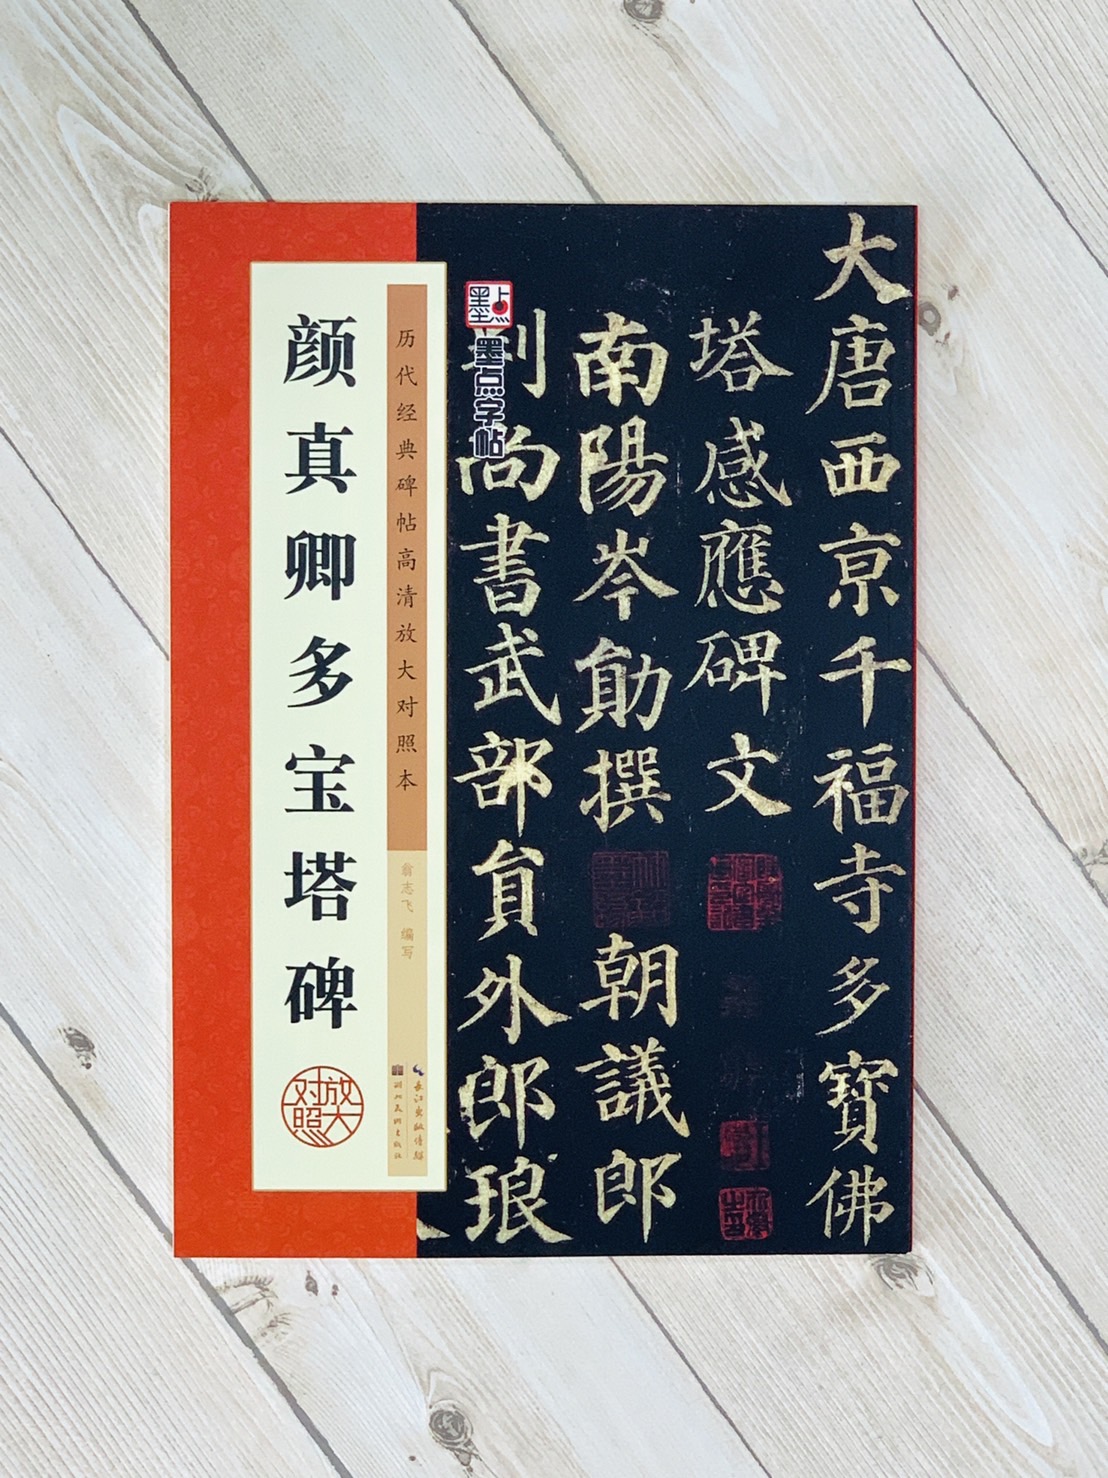 颜真卿多宝塔碑
放大
对照
历代经典碑帖高清放大对照本
翁志飞 编写
长江出版传媒
湖北美术出版社
墨点
墨点字帖
大唐西京千福寺多寶佛
塔感應碑文
南陽岑勛撰
朝議郎
判尚書武部員外郎琅